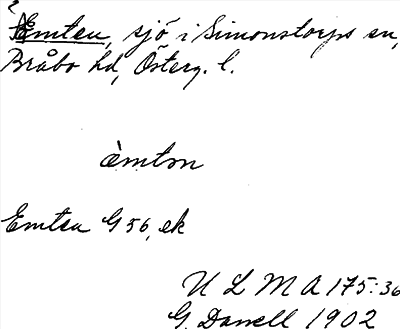 Emten, sjö i Simonstorps sn,
Bråbo hd, Österg. l.
æ̀mtən
Emten G 56, ek
U L M A 175:36
G. Danell 1902